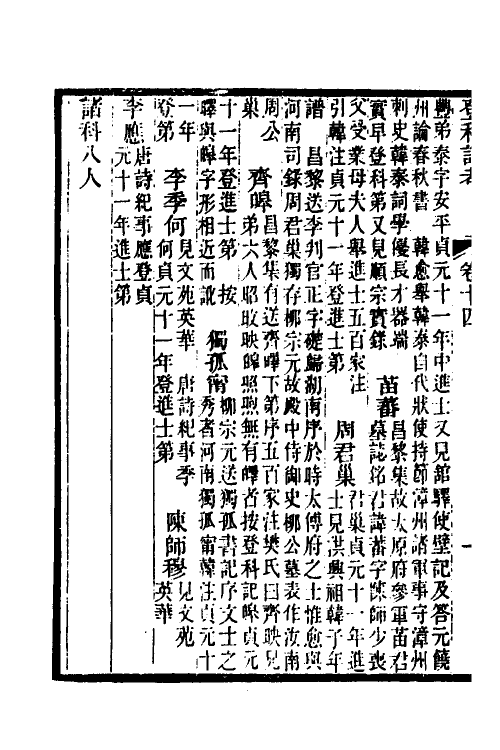 登科記考　卷十四　一
豐弟泰字安平貞元十一年中進士又見館驛使壁記及答元饒
州論春秋書　韓愈舉韓泰自代狀使持節漳州諸軍事守漳州
刺史韓泰詞學優長才器端
實早登科第又見順宗實錄　苗蕃昌黎集故太原府參軍苗君
墓誌銘君諱蕃字陳師少喪
父受業母夫人舉進士五百家注
引韓注貞元十一年登進士第　周君巢君巢貞元十一年進
士見洪興祖韓子年
譜　昌黎送李判官正字礎歸湖南序於時太傅府之士惟愈與
河南司錄周君巢獨存柳宗元故殿中侍御史柳公墓表作汝南
周公
巢　齊皞昌黎集有送齊皞下第序五百家注樊氏曰齊映兄
弟六人昭旼映皞照煦無有皞者按登科記皞貞元
十一年登進士第　按
皞與皡字形相近而訛　獨孤甯柳宗元送獨孤書記序文士之
秀者河南獨孤甯韓注貞元十
一年
登第　李季何見文苑英華　唐詩紀事季
何貞元十一年登進士第　陳師穆見文苑
英華
李應唐詩紀事應登貞
元十一年進士第
諸科八人